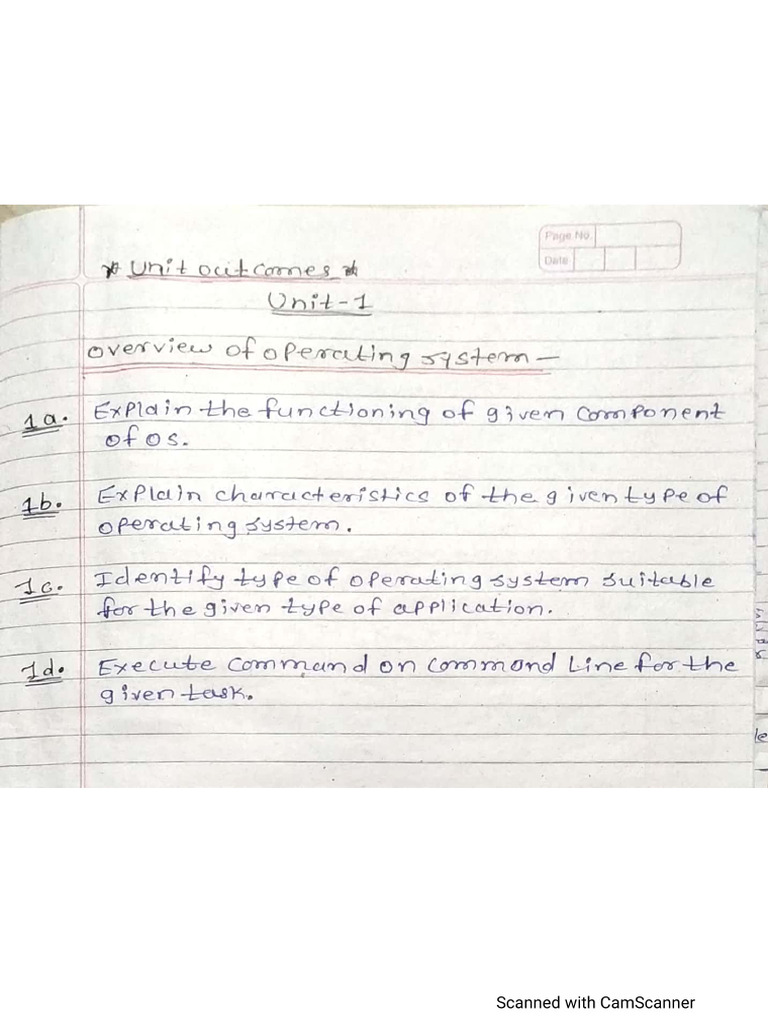 Page No.
Date
* Unit outcomes *
Unit-1
Overview of operating system —
1a. Explain the functioning of given component
of os.
1b. Explain characteristics of the given type of
operating system.
1c. Identify type of operating system suitable
for the given type of application.
1d. Execute command on command Line for the
given task.
Scanned with CamScanner